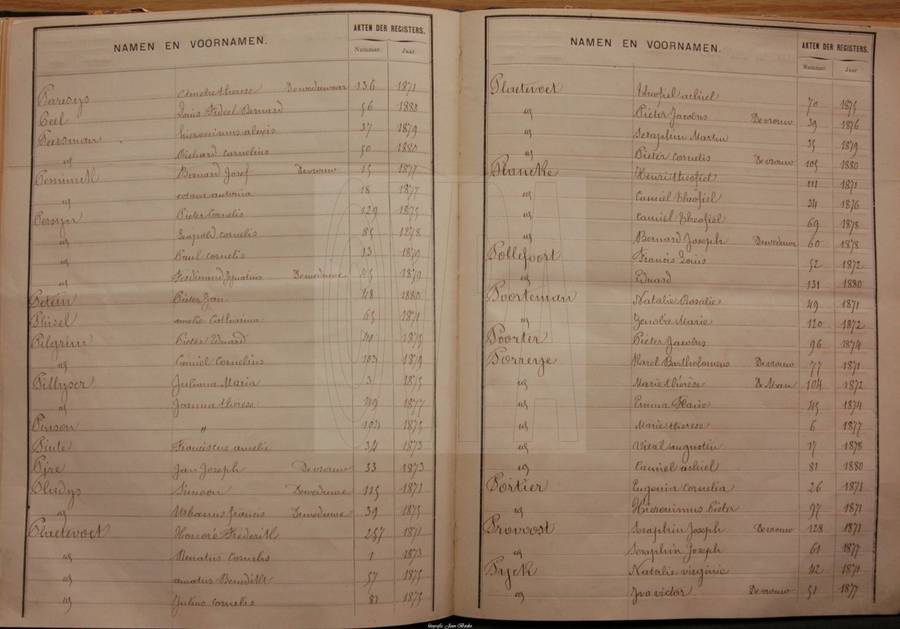 NAMEN EN VOORNAMEN. AKTEN DER REGISTERS.
Nummer. Jaar.
Amelie therese De weduwnaar 136 1871
Peel Louis Fideel Bernard 56 1880
Peersman hieronimus alexis 37 1879
id Richard cornelius 50 1880
Bernard Josef De vrouw 15 1877
id antonia 18 1877
Persyn Pieter Cornelis 129 1875
id Leopold Cornelis 85 1878
id Paul cornelis 13 1879
id Ferdinand Ignatius De weduwe 1879
Pieter Jan 48 1880
amelie Catharina 65 1871
Pilgrim Pieter Eduard 1879
id Camiel Cornelius 103 1879
Juliana Maria 3 1875
id Joanna therese 49 1877
Pinson " 104 1875
Pinte Franciscus amelie 34 1873
Jan Joseph De vrouw 33 1873
Simoon De weduwe 115 1871
id Urbanus francis De weduwe 39 1875
Plaetevoet Honoré Frederik 257 1871
id Renatus Cornelis 1 1873
id amatus Benedikt 57 1875
id Julius cornelis 81 1875
NAMEN EN VOORNAMEN. AKTEN DER REGISTERS.
Nummer. Jaar.
Plaetevoet theofiel achiel 70 1875
id Pieter Jacobus De vrouw 39 1876
id Seraphin Martin 35 1879
id Pieter cornelis De vrouw 105 1880
Plancke Henri theofiel 111 1871
id Camiel theofiel 24 1876
id Camiel theofiel 69 1878
id Bernard Joseph De weduwe 60 1878
Pollefoort Francis Louis 52 1872
id Eduard 131 1880
Poorteman Natalie Rosalie 49 1871
id Zenobe Marie 120 1872
Poorter Pieter Jacobus 96 1874
Porreye Karel Bartholomeus De vrouw 77 1871
id Marie thérèse De Man 104 1872
id Emma 45 1874
id Marie therese 6 1877
id Vital augustin 17 1878
id Camiel achiel 81 1880
Portier Eugenia Cornelia 26 1871
id Hieronimus Pieter 97 1871
Provoost Seraphin Joseph De vrouw 128 1871
id Seraphin Joseph 61 1877
Pyck Natalie virginie 42 1871
id Ivo victor De vrouw 51 1877
fotografie Joan Backx